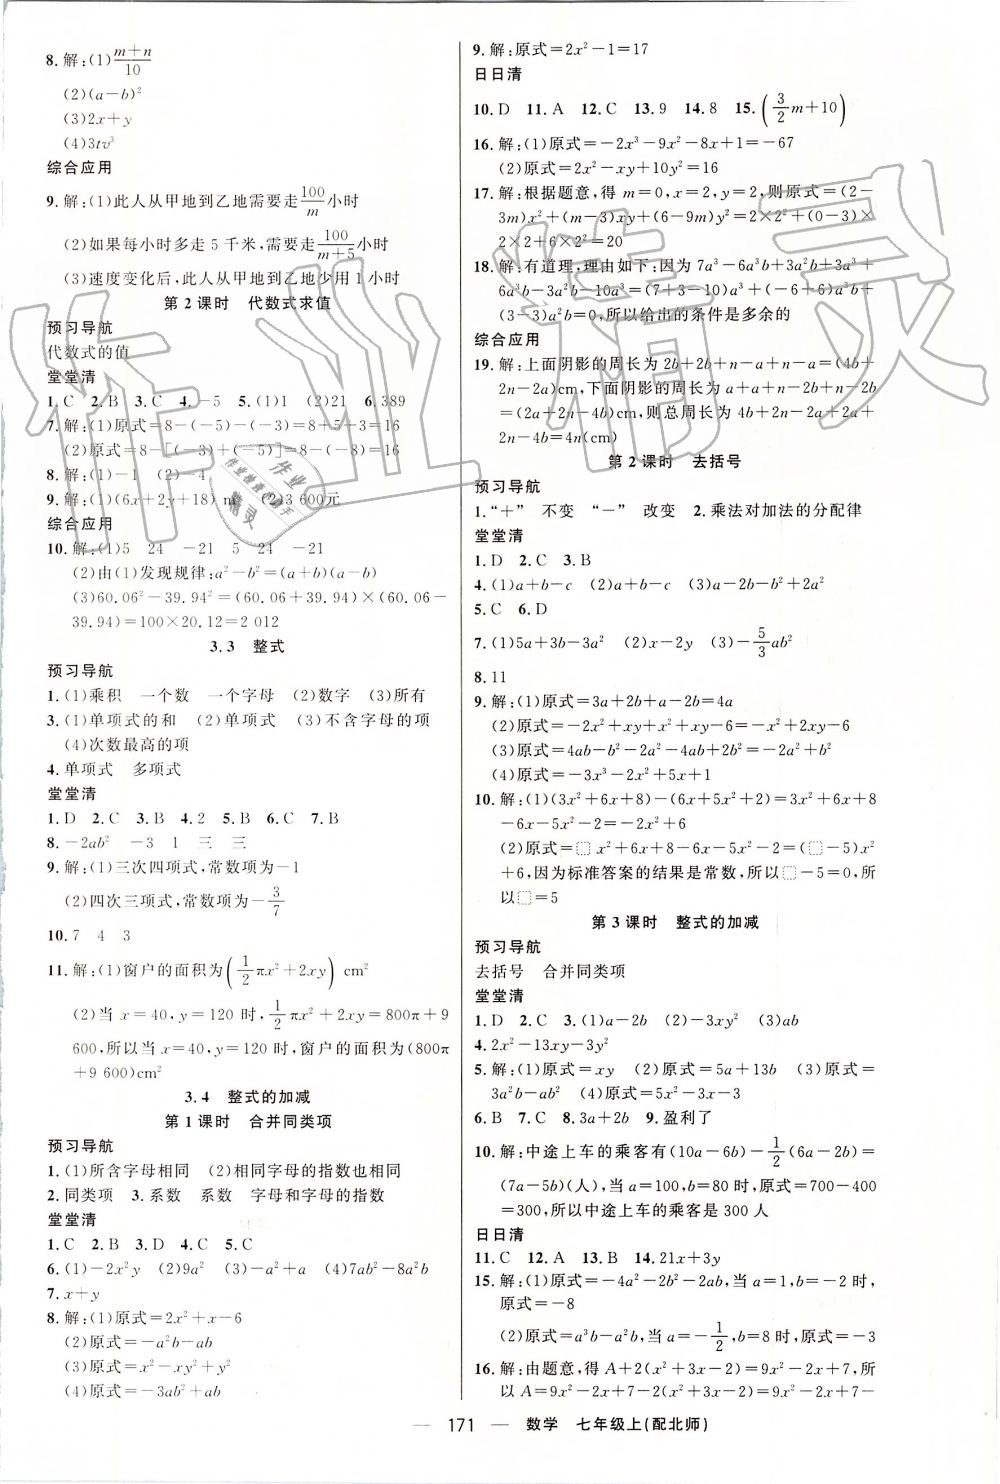 8. 解:(1)\frac{m+n}{10}
(2)(a-b)²
(3)2x+y
(4)3tv³
综合应用
9. 解:(1)此人从甲地到乙地需要走\frac{100}{m}小时
(2)如果每小时多走 5 千米,需要走\frac{100}{m+5}小时
(3)速度变化后,此人从甲地到乙地少用 1 小时
第 2 课时　代数式求值
预习导航
代数式的值
堂堂清
1. C　2. B　3. C　4. -5　5. (1)1　(2)21　6. 389
7. 解:(1)原式=8-(-5)-(-3)=8+5+3=16
(2)原式=8-[(-3)+(-5)]=8-(-8)=16
8. 解:(1)-1　(2)-4
9. 解:(1)(6x+2y+18) m　(2)3 600元
综合应用
10. 解:(1)5　24　-21　5　24　-21
(2)由(1)发现规律:a²-b²=(a+b)(a-b)
(3)60.06²-39.94²=(60.06+39.94)×(60.06-
39.94)=100×20.12=2 012
3.3　整式
预习导航
1. (1)乘积　一个数　一个字母　(2)数字　(3)所有
3. (1)单项式的和　(2)单项式　(3)不含字母的项
(4)次数最高的项
4. 单项式　多项式
堂堂清
1. D　2. C　3. B　4. 2　5. B　6. C　7. B
8. -2ab²　-3　1　三　三
9. 解:(1)三次四项式,常数项为-1
(2)四次三项式,常数项为-\frac{3}{7}
10. 7　4　3
11. 解:(1)窗户的面积为(\frac{1}{2}πx²+2xy) cm²
(2)当 x=40,y=120 时,\frac{1}{2}πx²+2xy=800π+9
600,所以当 x=40,y=120 时,窗户的面积为(800π
+9 600)cm²
3.4　整式的加减
第 1 课时　合并同类项
预习导航
1. (1)所含字母相同　(2)相同字母的指数也相同
2. 同类项　3. 系数　系数　字母和字母的指数
堂堂清
1. C　2. B　3. D　4. A　5. C
6. (1)-2x²y　(2)9a²　(3)-a²+a　(4)7ab²-8a²b
7. x+y
8. 解:(1)原式=2x²+x-6
(2)原式=-a²b-ab
(3)原式=x²-xy²+y²
(4)原式=-3ab²+ab
9. 解:原式=2x²-1=17
日日清
10. D　11. A　12. C　13. 9　14. 8　15. (\frac{3}{2}m+10)
16. 解:(1)原式=-2x³-9x²-8x+1=-67
(2)原式=2x²-xy+10y²=16
17. 解:根据题意,得 m=0,x=2,y=2,则原式=(2-
3m)x²+(m-3)xy+(6-9m)y²=2×2²+(0-3)×
2×2+6×2²=20
18. 解:有道理,理由如下:因为 7a³-6a³b+3a²b+3a³+
6a³b-3a²b-10a³=(7+3-10)a³+(-6+6)a³b+
(3-3)a²b=0,所以给出的条件是多余的
综合应用
19. 解:上面阴影的周长为 2b+2b+n-a+n-a=(4b+
2n-2a)cm,下面阴影的周长为 a+a+n-2b+n-2b
=(2a+2n-4b)(cm),则总周长为 4b+2n-2a+2a+
2n-4b=4n(cm)
第 2 课时　去括号
预习导航
1. “+”　不变　“-”　改变　2. 乘法对加法的分配律
堂堂清
1. D　2. C　3. B
4. (1)a+b-c　(2)a+b-c　(3)a-2b-b²+2a²
5. C　6. D
7. (1)5a+3b-3a²　(2)x-2y　(3)-\frac{5}{3}ab²
8. 11
9. 解:(1)原式=3a+2b+a-2b=4a
(2)原式=-2x²+xy+x²+xy-6=-x²+2xy-6
(3)原式=4ab-b²-2a²-4ab+2b²=-2a²+b²
(4)原式=-3x³-2x²+5x+1
10. 解:(1)(3x²+6x+8)-(6x+5x²+2)=3x²+6x+8
-6x-5x²-2=-2x²+6
(2)原式=□ x²+6x+8-6x-5x²-2=(□-5)x²
+6,因为标准答案的结果是常数,所以□-5=0,所
以□=5
第 3 课时　整式的加减
预习导航
去括号　合并同类项
堂堂清
1. D　2. C　3. (1)a-2b　(2)-3xy²　(3)ab
4. 2x²-13xy-3y²
5. 解:(1)原式=-x²y　(2)原式=5a+13b　(3)原式=
3a²b-ab²　(4)原式=5x²-3x-3
6. B　7. C　8. 3a+2b　9. 盈利了
10. 解:中途上车的乘客有(10a-6b)-\frac{1}{2}(6a-2b)=
(7a-5b)(人),当 a=100,b=80 时,原式=700-400
=300,所以中途上车的乘客是 300 人
日日清
11. C　12. A　13. B　14. 21x+3y
15. 解:(1)原式=-4a²-2b²-2ab,当 a=1,b=-2 时,
原式=-8
(2)原式=a³b-a²-b,当 a=-\frac{1}{2},b=8 时,原式=-3
16. 解:由题意,得 A+2(x²+3x-2)=9x²-2x+7,所
以 A=9x²-2x+7-2(x²+3x-2)=9x²-2x+7-
— 171 — 数学　七年级上(配北师)
作业精灵